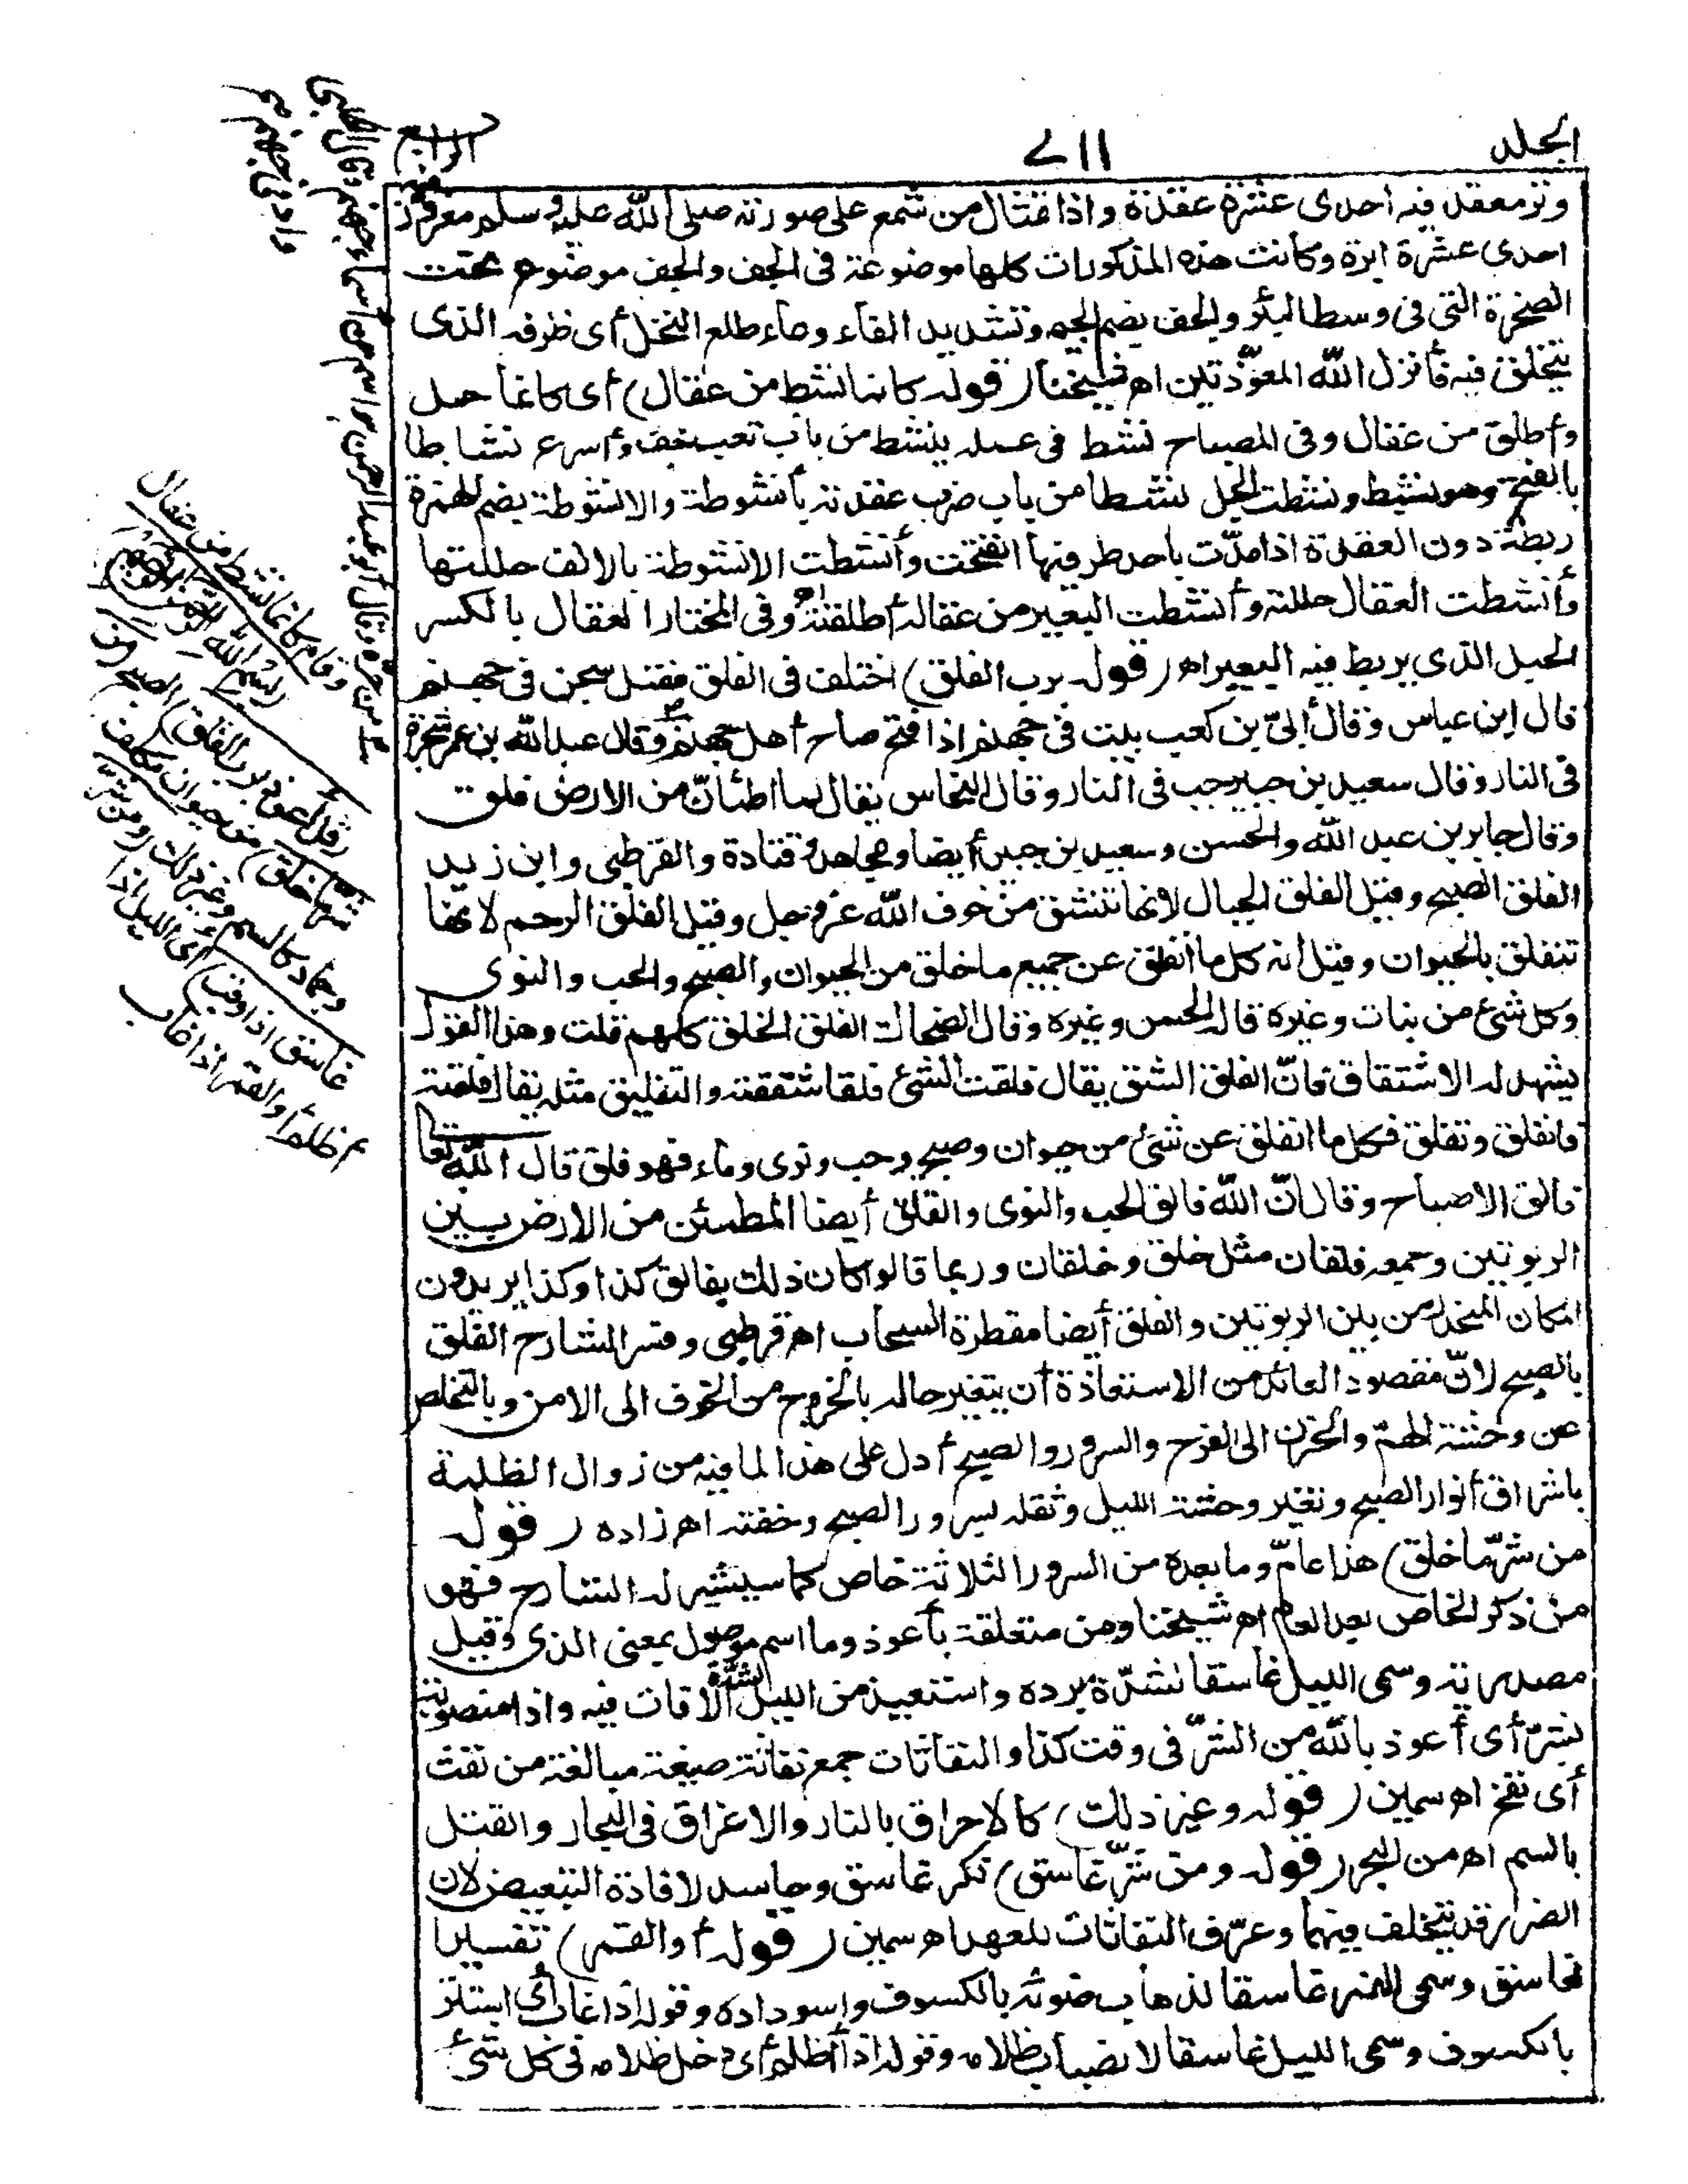 الجلد
٧١١
الرابع
وتر معقد فيه احدى عشرة عقدة واذا تمثال من شمع على صورته صلى الله عليه وسلم مغروز
احدى عشرة ابرة وكانت هذه المذكورات كلها موضوعة فى الجف والجف موضوع تحت
الصخرة التى فى وسط البئر والجف بضم الجيم وتشديد الفاء وعاء طلع النخل أى ظرفه الذى
يتخلق فيه فأنزل الله المعوّذتين اهـ شيخنا (قوله كانما نشط من عقال) أى كانما حل
وأطلق من عقال وفى المصباح نشط فى عمله ينشط من باب تعب خف وأسرع نشاطا
بالفتح وهو نشيط ونشطت الحبل نشطا من باب ضرب عقدته بأنشوطة والانشوطة بضم الهمزة
ربطة دون العقدة اذا مدّت باحد طرفيها انفتحت وأنشطت الانشوطة بالالف حللتها
وأنشطت العقال حللته وأنشطت البعير من عقاله أطلقته اهـ وفى المختار العقال بالكسر
الحبل الذى يربط فيه البعير اهـ (قوله برب الفلق) اختلف فى الفلق فقيل سجن فى جهنم
قال ابن عباس وقال أبىّ بن كعب بيت فى جهنم اذا فتح صاح أهل جهنم وقال عبد الله بن عمر شجرة
فى النار وقال سعيد بن جبير جب فى النار وقال النحاس يقال لما اطمأنّ من الارض فلق
وقال جابر بن عبد الله والحسن وسعيد بن جبير أيضا ومجاهد وقتادة والقرظى وابن زيد
الفلق الصبح وقيل الفلق الجبال لانها تنشق من خوف الله عز وجل وقيل الفلق الرحم لانها
تنفلق بالحيوان وقيل انه كل ما انفلق عن جميع ما خلق من الحيوان والصبح والحب والنوى
وكل شئ من نبات وغيره قاله الحسن وغيره وقال الضحاك الفلق الخلق كلهم قلت وهذا القول
يشهد له الاشتقاق فانّ الفلق الشق يقال فلقت الشئ فلقا شققته والتفليق مثله يقال فلقته
فانفلق وتفلق فكل ما انفلق عن شئ من حيوان وصبح وحب ونوى وماء فهو فلق قال الله تعالى
فالق الاصباح وقال انّ الله فالق الحب والنوى والفلق أيضا المطمئن من الارض بين
الربوتين وجمعه فلقان مثل خلق وخلقان وربما قالوا كان ذلك بفالق كذا وكذا يريدون
المكان المنحدر من بين الربوتين والفلق أيضا مقطرة السجان اهـ قرطبى وفسر الشارح الفلق
بالصبح لانّ مقصود العائذ من الاستعاذة أن يتغير حاله بالخروج من الخوف الى الامن وبالتخلص
عن وحشة الهمّ والحزن الى الفرح والسرور والصبح أدل على هذا لما فيه من زوال الظلمة
باشراق أنوار الصبح وتغير وحشة الليل وثقله بسرور الصبح وخفته اهـ زاده (قوله
من شرّ ما خلق) هذا عامّ وما بعده من الشرور الثلاثة خاص كما سيشير له الشارح فهو
من ذكر الخاص بعد العام اهـ شيخنا ومن متعلقة بأعوذ وما اسم موصول بمعنى الذى وقيل
مصدرية وسمى الليل غاسقا لشدّة برده واستعيذ من الليل لشدّة الآفات فيه واذا منصوبة
بشرّ أى أعوذ بالله من الشرّ فى وقت كذا والنفاثات جمع نفاثة صيغة مبالغة من نفث
أى نفخ اهـ سمين (قوله وغير ذلك) كالاحراق بالنار والاغراق فى البحار والقتل
بالسم اهـ من البحر (قوله ومن شرّ غاسق) نكر غاسق وحاسد لافادة التبعيض لان
الضرر قد يتخلف فيهما وعرّف النفاثات للعهد اهـ سمين (قوله أو القمر) تفسير
لغاسق وسمى القمر غاسقا لذهاب ضوئه بالكسوف واسوداده وقوله اذا غاب أى استتر
بالكسوف وسمى الليل غاسقا لانصباب ظلامه وقوله اذا أظلم أى دخل ظلامه فى كل شئ
وقام كانما نشط من عقال
(بسم الله الرحمن الرحيم
قل أعوذ برب الفلق) الصبح (من
شر ما خلق) من حيوان مكلف
وجماد كالسم وغير ذلك (ومن شرّ
غاسق اذا وقب) أى الليل اذا
أظلم أو القمر اذا غاب
واد فى جهنم